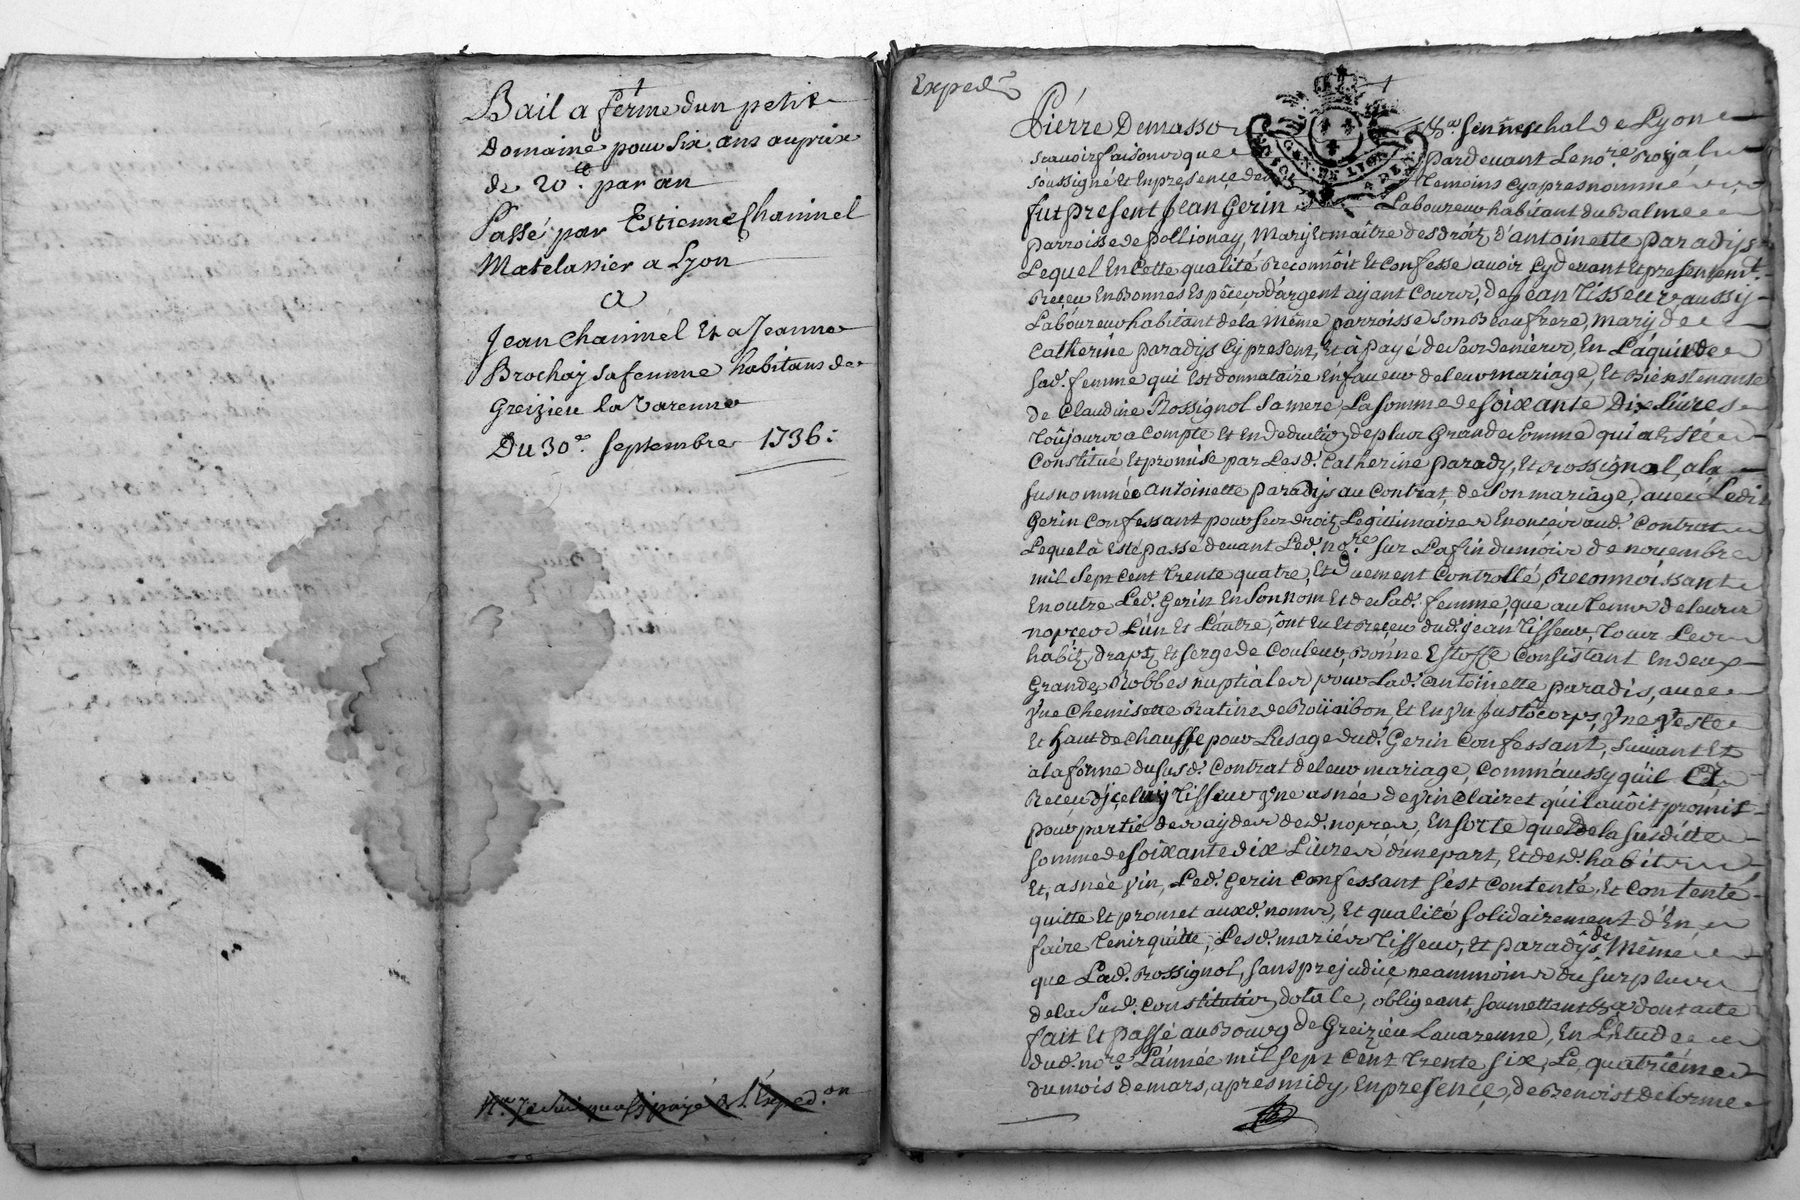 Bail a ferme dun petit
Domaine pour six ans au prix
de 20.ᵗᵗ par an
Passé par Estienne Chaninel
Matelassier a Lyon
a
Jean Chaninel Et a Jeanne
Brochay sa femme habitans de
Greizieu la Varenne
Du 30.ᵉ Septembre 1736:
Expedᵉ
Pierre Demasso Senneschal de Lyon
scavoir faisons que Pardevant Le noʳᵉ Royal
soussigné Et En presence des Temoins cy apres nommés
fut present Jean Gerin Laboureur habitant du Balme
parroisse de Pollionay, Mary Et maître des droitz d'antoinette paradys
Lequel En Cette qualité Reconnôit Et Confesse avoir cy devant Et presentemt.
Receu En Bonnes Espêces d'argent ayant Cours, de Jean Tisseur aussy
Laboureur habitant de la Même parroisse son Beaufrere, mary de
Catherine paradys Cy present, Et à payé de Ses deniers, En L'aquit de
sad. femme qui Est donnataire En faveur de leur mariage, Et Bienstenante
de Claudine Rossignol Sa mere, La Somme de soixante Dix Livres
Toûjours a Compte Et En Deduction de plus Grande Somme qui a Esté
Constitué Et promise par Lesd. Catherine parady, Et Rossignol, a la
susnommée antoinette paradys au Contrat de Son mariage, avec Ledit
Gerin Confessant pour Ses droitz Legittimaires Enoncés aud. Contrat
Lequel à Esté passé devant Led. noʳᵉ Sur La fin du mois de novembre
mil Sept Cent trente quatre, Et duement Controllé, Reconnoissant
En outre Led. Gerin En Son Nom Et de Sad. femme, que au Tems de leurs
nopces L'un Et L'autre, ônt Eu Et Receu dud. Jean Tisseur, Tous Leurs
habitz, drapz, Et Serge de Couleur, Bonne Estoffe Consistant En deux
Grandes Robbes nuptiales pour Lad. antoinette paradis, avec
Vne Chemisette Ratine de Et En Vn Justocorps, Vne Veste
Et haut de Chausse pour L'usage dud. Gerin Confessant, Suivant Et
a la forme du Susd. Contrat de leur mariage, Comm'aussy qu'il a
Receu d'jceluy Tisseur Vne asnée de Vin Clairet qu'il avôit promit
pour partie des aydes desd. nopces, En Sorte que de la Susditte
Somme de soixante dix Livres d'une part, Et desd. habits
Et, asnée Vin, Led. Gerin Confessant s'est Contenté. Et Contente
quitte Et promet auxd. noms, Et qualité Solidairement d'En
faire Tenir quitte, Lesd. mariés Tisseur, Et paradys, de Même
que Lad. Rossignol, Sans prejudice neammoins du Surplus
de la Susd. Constitution dotale, obligeant, Soumettant &a dont acte
fait Et passé au Bourg de Greizieu Lavarenne, En L'Etude
dud. noʳᵉ L'année mil Sept Cent trente Six, Le quatriême
du mois de mars, apres midy, En presence, de Benoist delorme